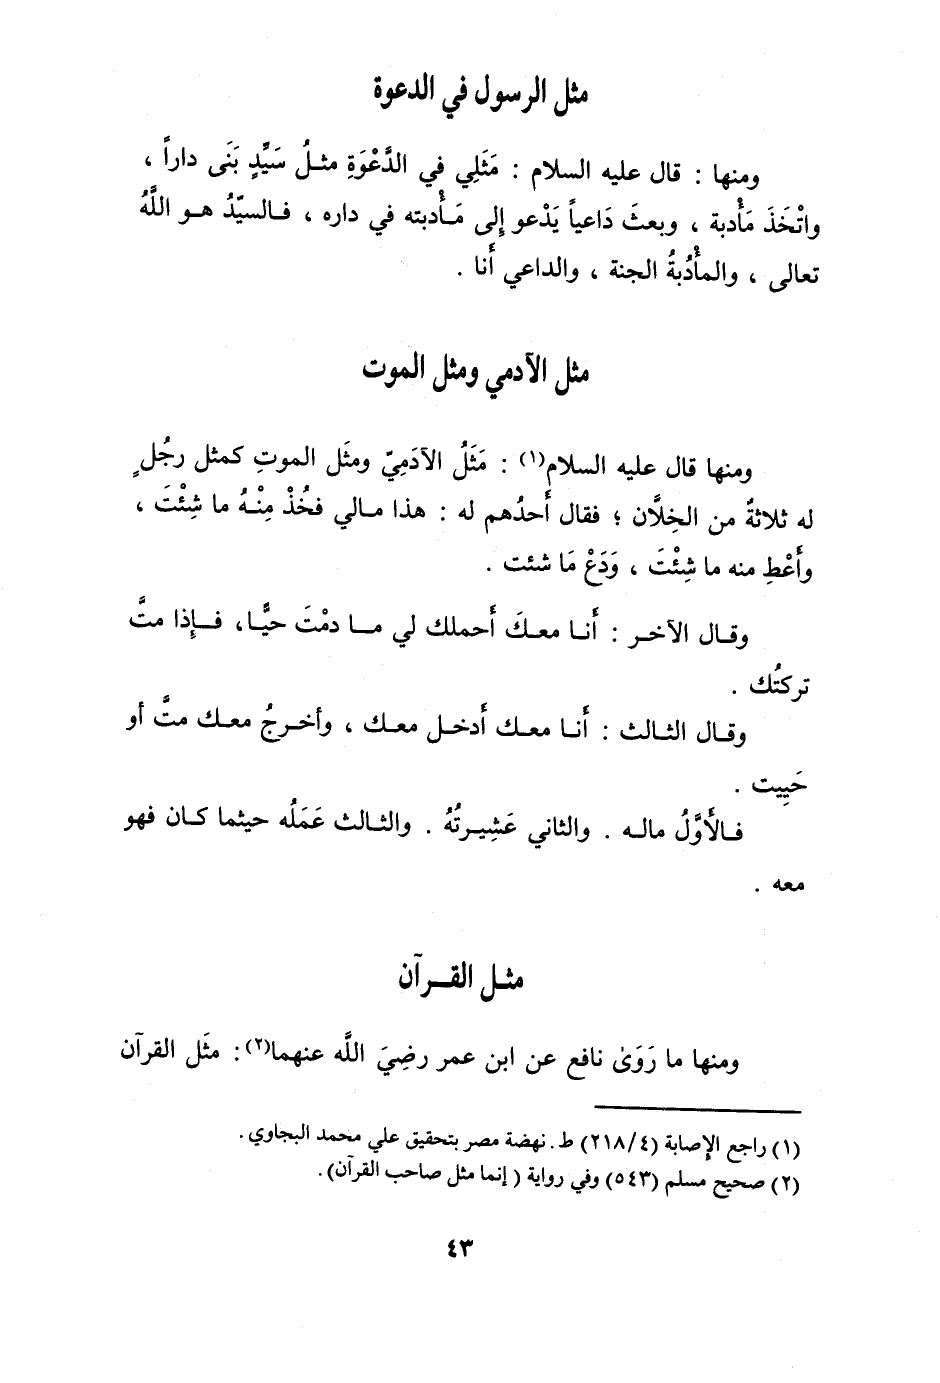 مثل الرسول في الدعوة
ومنها : قال عليه السلام : مَثَلِي في الدَّعْوَةِ مثـلُ سَيِّدٍ بَنَى داراً ،
واتْخَذَ مَأْدبة ، وبعثَ دَاعياً يَدْعو إِلى مَـأْدبته في داره ، فـالسيّدُ هـو اللَّهُ
تعالى ، والمأْدُبةُ الجنة ، والداعي أَنا .
مثل الآدمي ومثل الموت
ومنها قال عليه السلام(١) : مَثَلُ الآدَمِيّ ومثَل الموتِ كمثل رجُلٍ
له ثلاثةٌ من الخِلَّان ؛ فقال أَحدُهم له : هذا مـالي فخُذْ مِنْـهُ ما شِئْتَ ،
وأَعْطِ منه ما شِئْتَ ، وَدَعْ مَا شئت .
وقـال الآخـر : أَنـا معـكَ أَحملك لي مـــا دمْتَ حيًّـا، فــإِذا متَّ
تركتُك .
وقـال الثـالث : أَنـا معـك أَدخـل معـك ، وأخـرجُ معـك متَّ أو
حَيِيت .
فـالأَوَّلُ مالـه . والثاني عَشِيـرتُهُ . والثـالث عَمَلُه حيثما كـان فهو
معه .
مثـل القــرآن
ومنها ما رَوَىٰ نافع عن ابن عمر رضِيَ اللَّه عنهما(٢) : مثَل القرآن
(١) راجع الإِصابة (٤/٢١٨) ط. نهضة مصر بتحقيق علي محمد البجاوي.
(٢) صحيح مسلم (٥٤٣) وفي رواية ( إنما مثل صاحب القرآن).
٤٣